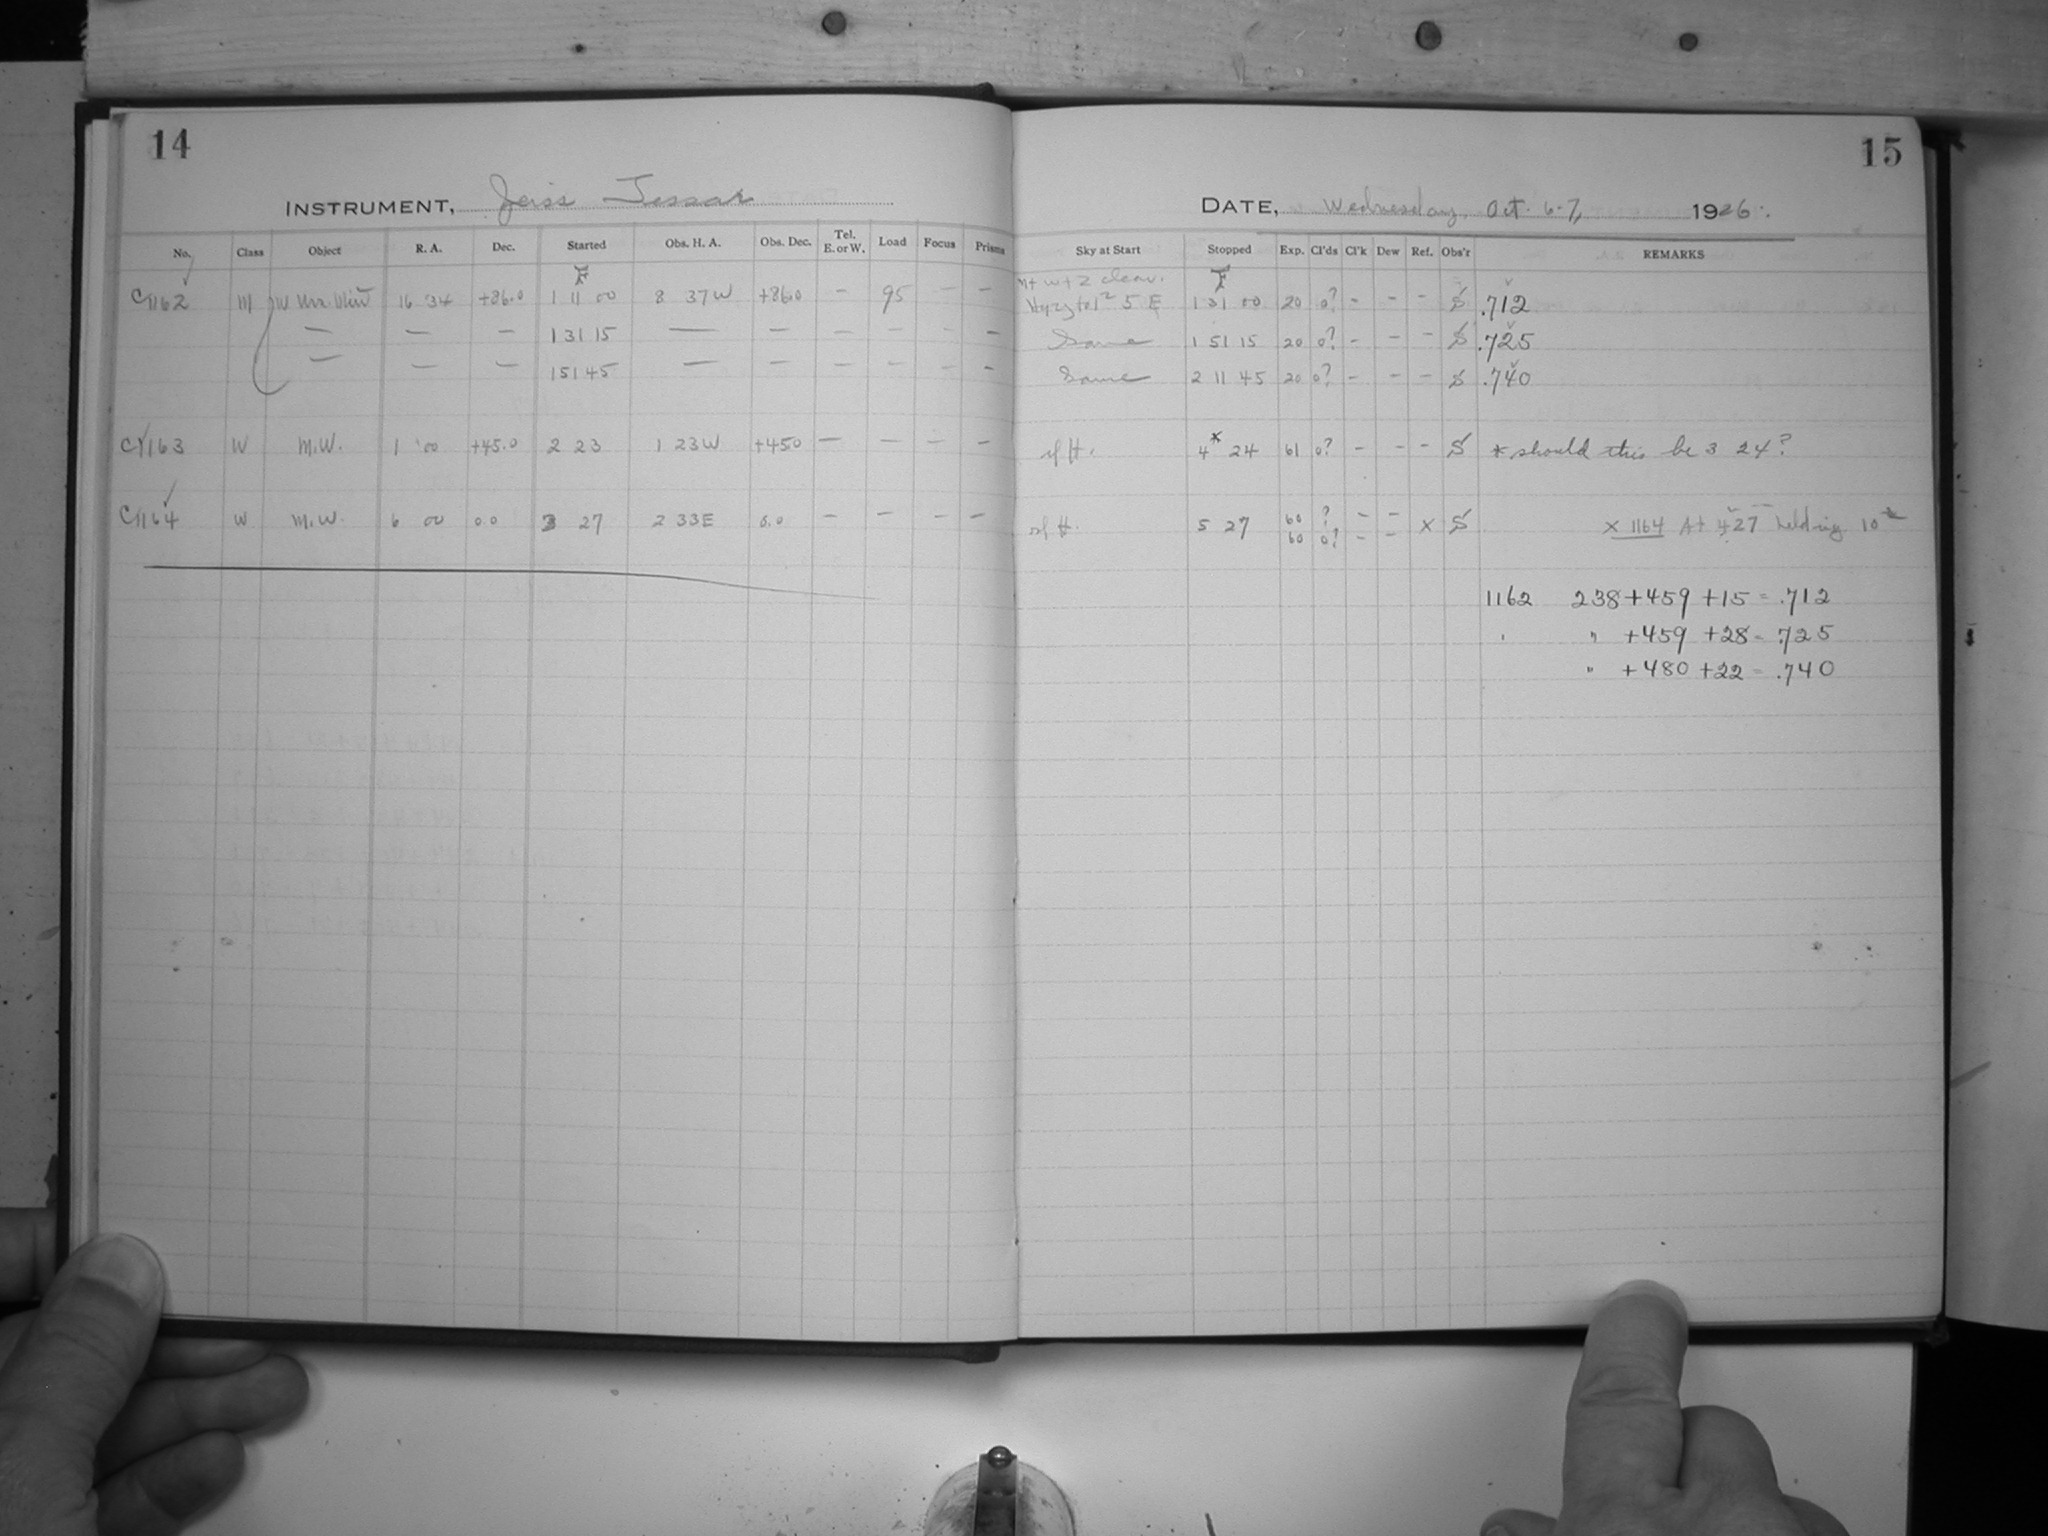 14
INSTRUMENT, Zeiss Tessar
No. Class Object R. A. Dec. Started Obs. H. A. Obs. Dec. Tel. E. or W. Load Focus Prisms
C1162 M W Urs. Min 16 34 +86.0 1 11 00 8 37W +86.0 — 95 — —
— — — 1 31 15 — — — — — —
— — — 1 51 45 — — — — — —
C1163 W M.W. 1 00 +45.0 2 23 1 23W +45.0 — — — —
C1164 W M.W. 6 00 0.0 3 27 2 33E 0.0 — — — —
15
DATE, Wednesday, Oct. 6-7, 1926.
Sky at Start Stopped Exp. Cl'ds Cl'k Dew Ref. Obs'r REMARKS
n + w + z clear.
5 E 1 31 00 20 0? - - - S .712
Same 1 51 15 20 0? - - - S .725
Same 2 11 45 20 0? - - - S .740
4* 24 61 0? - - - S * should this be 3 24?
5 27 60 ? - - X S X 1164 At 427 holding 10
60 0? - -
1162 238+459+15 = .712
" " +459 +28 = .725
" +480 +22 = .740